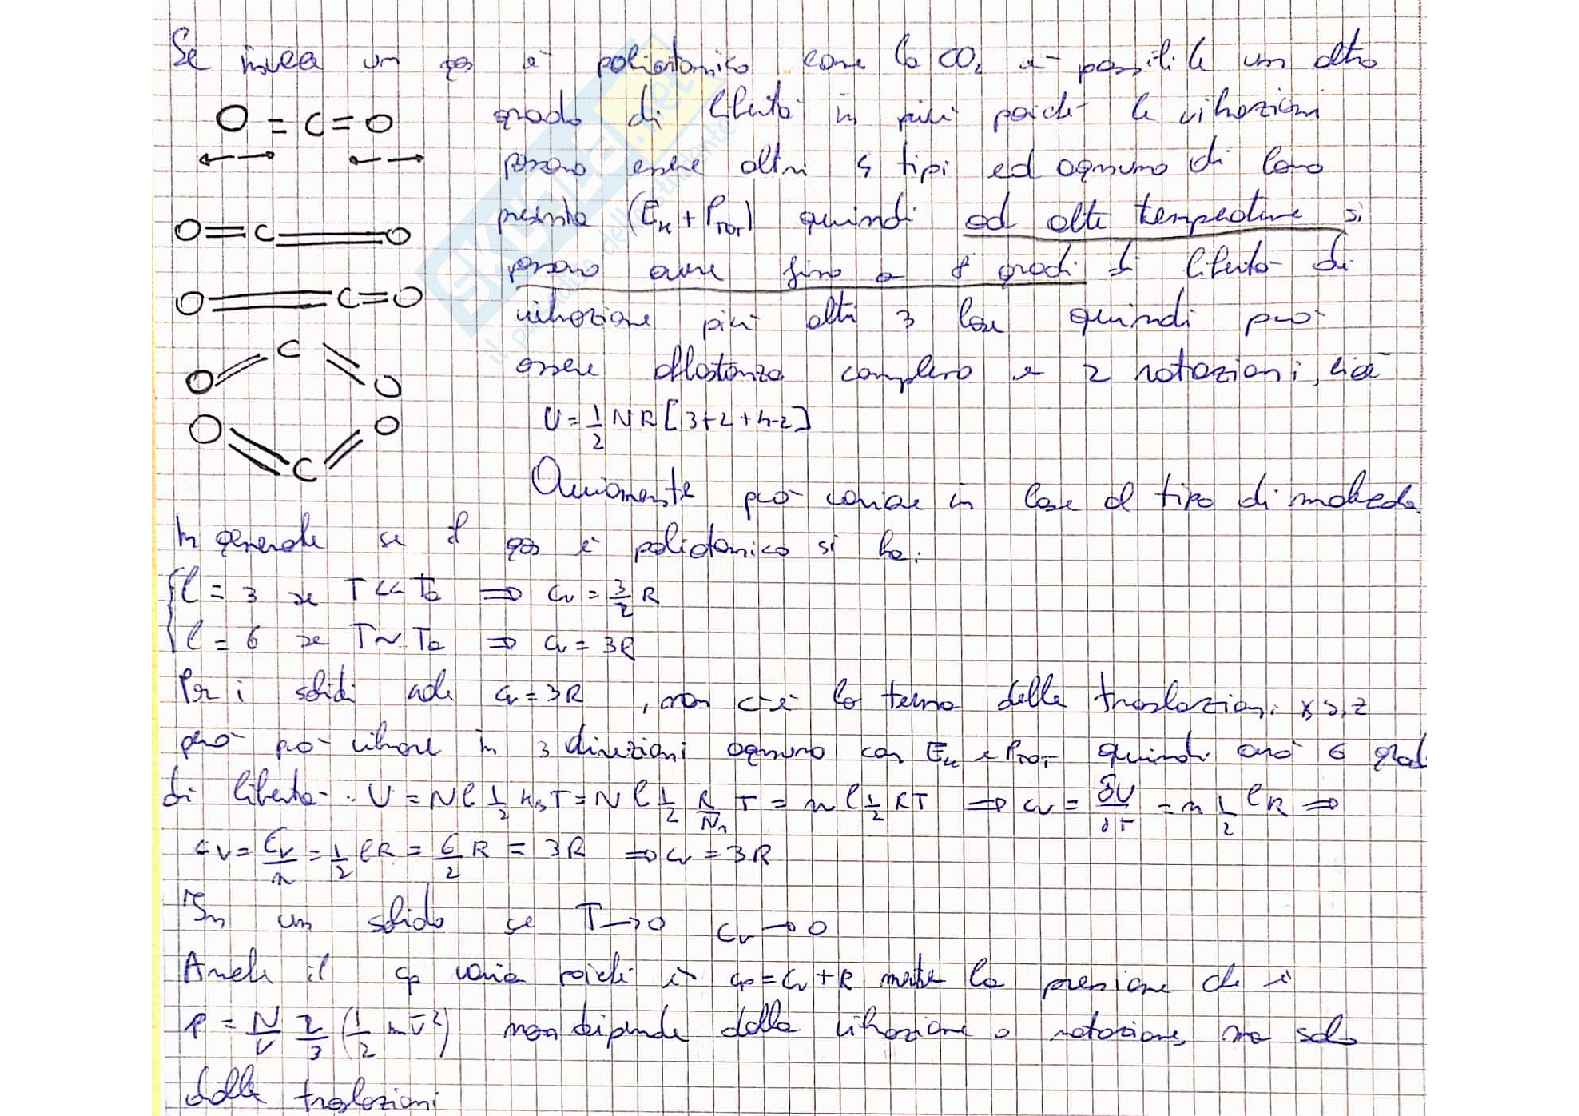 Se invece un gas è poliatomico come la CO₂ è possibile un altro
O = C = O
grado di libertà in più poiché le vibrazioni
possono essere altri 4 tipi ed ognuno di loro
presenta (Ek + Ptot) quindi ad alte temperature si
O = C = O
possono avere fino a 8 gradi di libertà di
O = C = O
vibrazione più altri 3 quindi può
O C O
essere abbastanza complesso e 2 rotazioni, cioè
U = 1/2 N R [3+2+4·2]
O C O
Ovviamente può variare in base al tipo di molecola.
In generale se il gas è poliatomico si ha:
l = 3 se T << T₀ ⇒ cv = 3/2 R
l = 6 se T ~ T₀ ⇒ cv = 3R
Per i solidi vale cv = 3R, non c'è lo termo delle traslazioni x,y,z
però può vibrare in 3 direzioni ognuno con Ek e Ptot quindi avrà 6 gradi
di libertà. U = N l 1/2 kB T = N l 1/2 R/NA T = n l 1/2 RT ⇒ cv = δU/δT = n 1/2 l R ⇒
cv = Cv/n = 1/2 l R = 6/2 R = 3R ⇒ cv = 3R
In un solido se T → 0 cv → 0
Anche il cp varia poiché è cp = cv + R mentre la pressione che è
p = N/V 2/3 (1/2 m v̄²) non dipende dalla vibrazione o rotazione, ma solo
dalle traslazioni